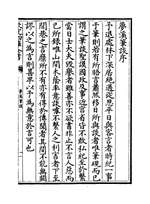 夢溪筆談序
予退處林下深居絕過從思平日與客言者時紀一事
於筆則若有所晤言蕭然移日所與談者唯筆硯而已
謂之筆談聖謨國政及事近宮省皆不敢私紀至於繫
當日士大夫毀譽者雖善亦不欲書非止不言人惡而
已所錄唯山間木蔭率意談噱不繫人之利害者下至
閭巷之言靡所不有亦有得於傳聞者其間不能無闕
謬以之為言則甚卑以予為無意於言可也